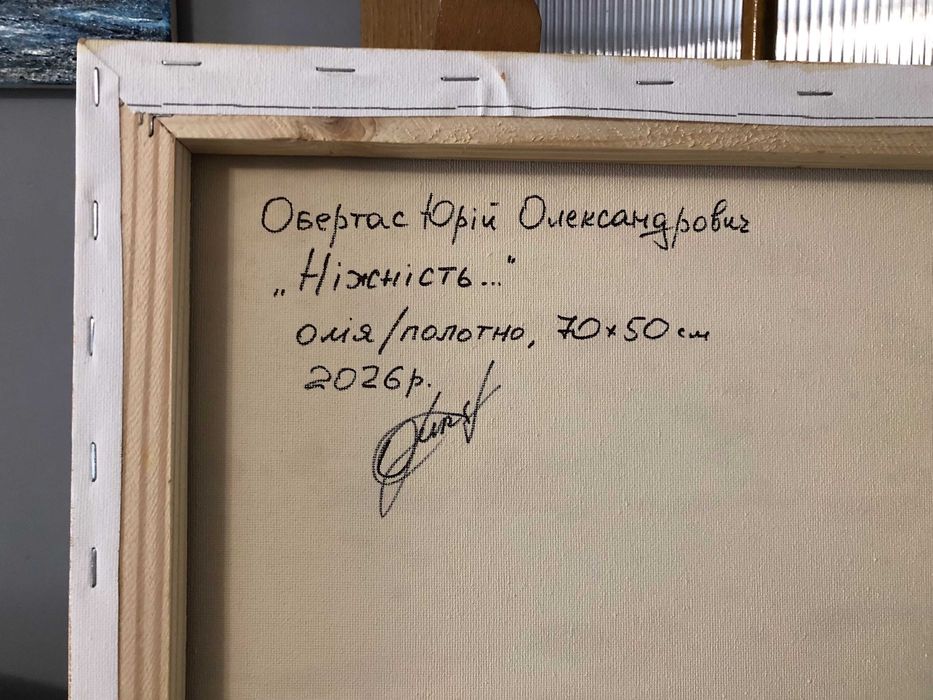 Обертас Юрій Олександрович
„Ніжність..."
олія/полотно, 70×50 см
2026р.